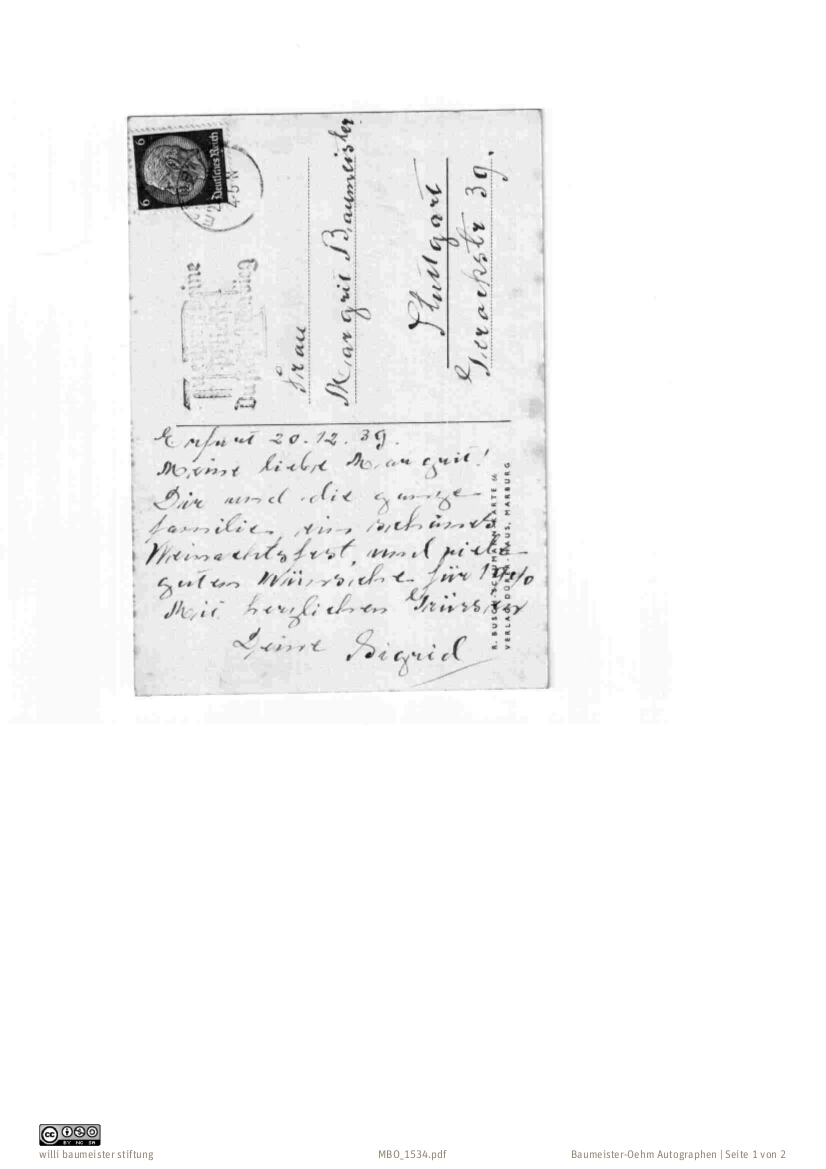 6 6
Deutsches Reich
Frau
Margrit Baumeister
Stuttgart
Gerokstr 39.
Erfurt 20.12.39.
Meine liebe Margrit!
Dir und die ganze
familie, ein schönes
Weinachtsfest, und viele
guten Wünsche für 1940
Mit herzlichen Grüssen
Deine Sigrid
R. BUSCH-SCHUMANN KARTE
VERLAG DÜRER-HAUS, MARBURG
CC BY NC SA
willi baumeister stiftung MBO_1534.pdf Baumeister-Oehm Autographen | Seite 1 von 2